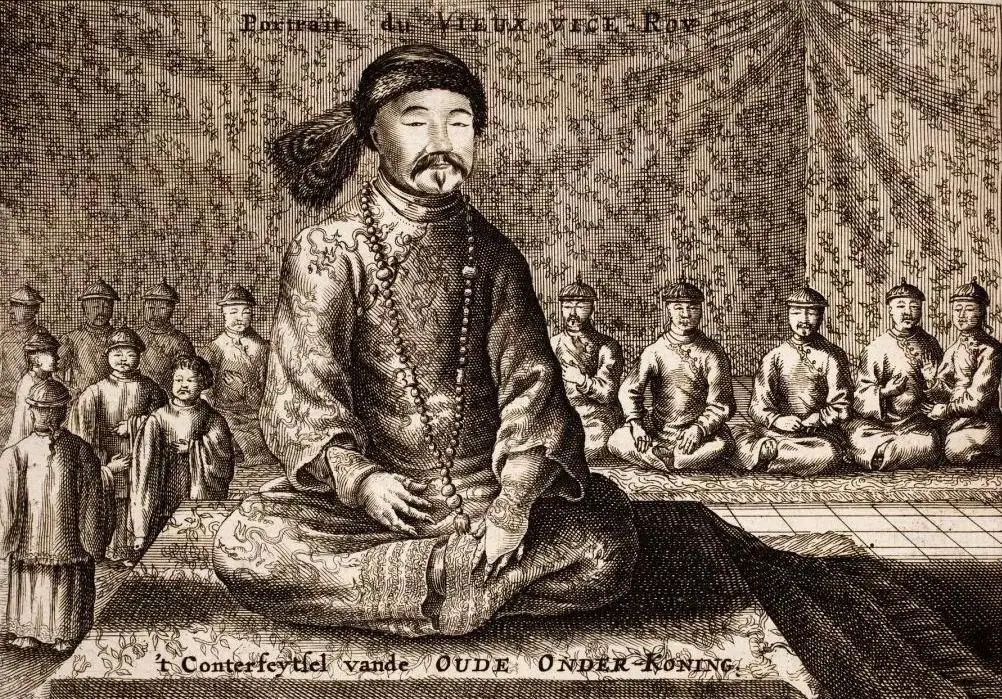 Portrait du VIEUX VICE-ROY
't Conterfeytsel vande OUDE ONDER-KONING.